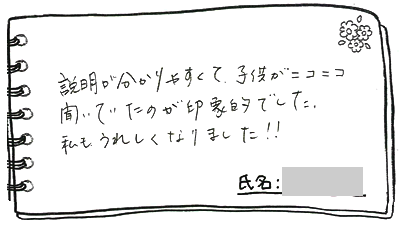 説明が分かりやすくて、子供がニコニコ
聞いていたのが印象的でした。
私もうれしくなりました!!
氏名: